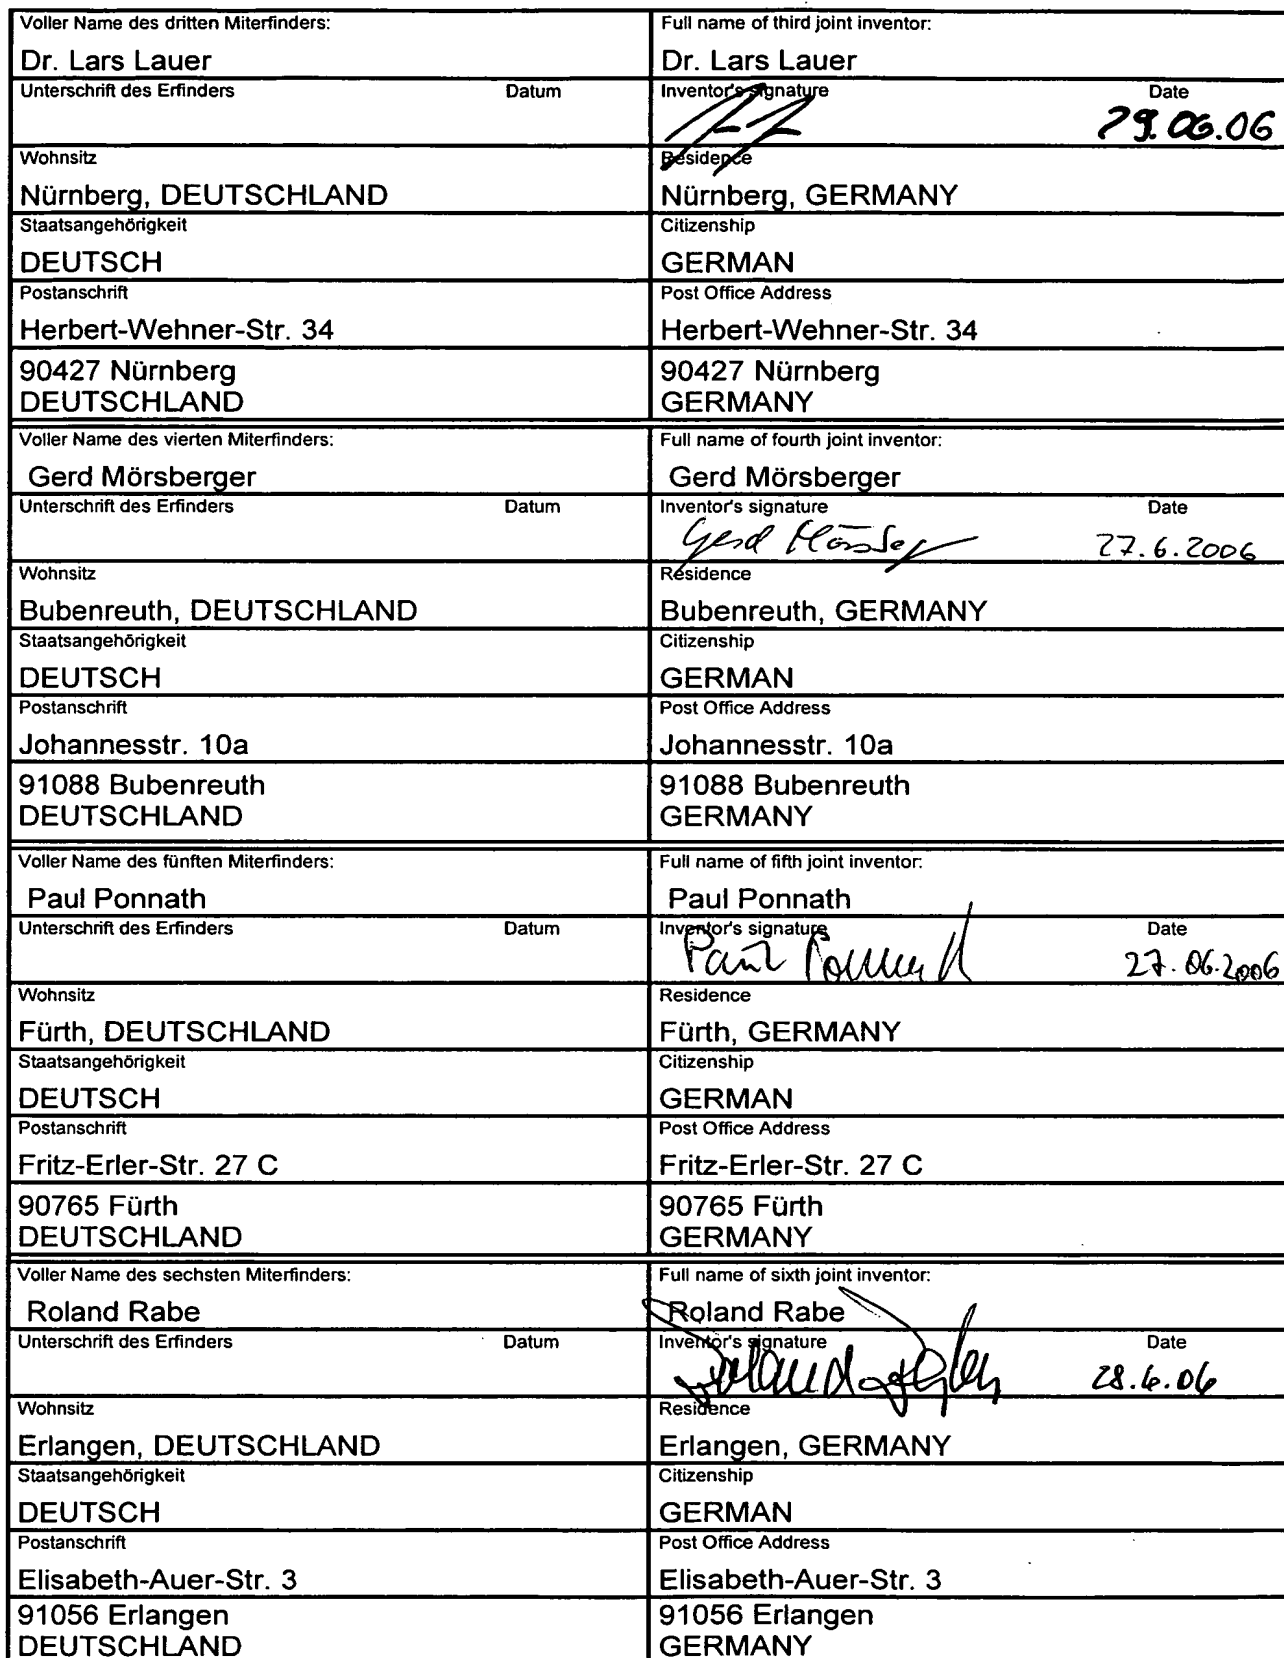 Voller Name des dritten Miterfinders: Full name of third joint inventor:
Dr. Lars Lauer Dr. Lars Lauer
Unterschrift des Erfinders Datum Inventor's signature Date
29.06.06
Wohnsitz Residence
Nürnberg, DEUTSCHLAND Nürnberg, GERMANY
Staatsangehörigkeit Citizenship
DEUTSCH GERMAN
Postanschrift Post Office Address
Herbert-Wehner-Str. 34 Herbert-Wehner-Str. 34
90427 Nürnberg 90427 Nürnberg
DEUTSCHLAND GERMANY
Voller Name des vierten Miterfinders: Full name of fourth joint inventor:
Gerd Mörsberger Gerd Mörsberger
Unterschrift des Erfinders Datum Inventor's signature Date
Gerd 27.6.2006
Wohnsitz Residence
Bubenreuth, DEUTSCHLAND Bubenreuth, GERMANY
Staatsangehörigkeit Citizenship
DEUTSCH GERMAN
Postanschrift Post Office Address
Johannesstr. 10a Johannesstr. 10a
91088 Bubenreuth 91088 Bubenreuth
DEUTSCHLAND GERMANY
Voller Name des fünften Miterfinders: Full name of fifth joint inventor:
Paul Ponnath Paul Ponnath
Unterschrift des Erfinders Datum Inventor's signature Date
Paul Ponnath 27.06.2006
Wohnsitz Residence
Fürth, DEUTSCHLAND Fürth, GERMANY
Staatsangehörigkeit Citizenship
DEUTSCH GERMAN
Postanschrift Post Office Address
Fritz-Erler-Str. 27 C Fritz-Erler-Str. 27 C
90765 Fürth 90765 Fürth
DEUTSCHLAND GERMANY
Voller Name des sechsten Miterfinders: Full name of sixth joint inventor:
Roland Rabe Roland Rabe
Unterschrift des Erfinders Datum Inventor's signature Date
28.6.06
Wohnsitz Residence
Erlangen, DEUTSCHLAND Erlangen, GERMANY
Staatsangehörigkeit Citizenship
DEUTSCH GERMAN
Postanschrift Post Office Address
Elisabeth-Auer-Str. 3 Elisabeth-Auer-Str. 3
91056 Erlangen 91056 Erlangen
DEUTSCHLAND GERMANY